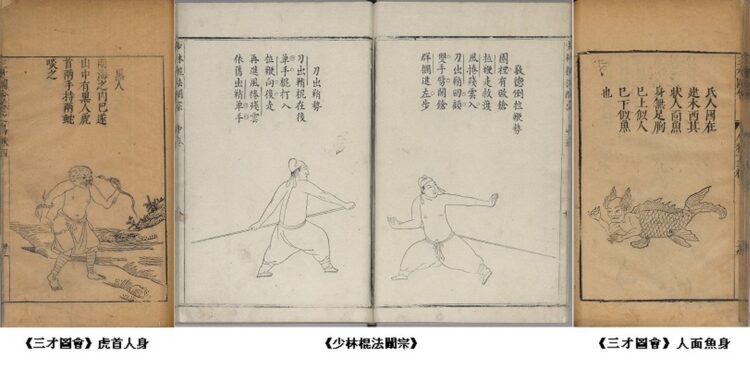 黑人
南海之内巴遂
山中有黑人虎
首兩手持兩蛇
啖之
敬德倒拉鞭勢
圈裡有敗鎗
拉鞭走救護
風捲殘雲入
刀出鞘回顧
雙手劈開鎗
群攔進左步
刀出鞘勢
刀出鞘棍在後
單手棍打入
拉鞭向後走
再進風捲殘雲
依舊出鞘單手
氐人國在
建木西其
狀人面魚
身無足胸
已上似人
已下似魚
也
《三才圖會》虎首人身
《少林棍法闡宗》
《三才圖會》人面魚身